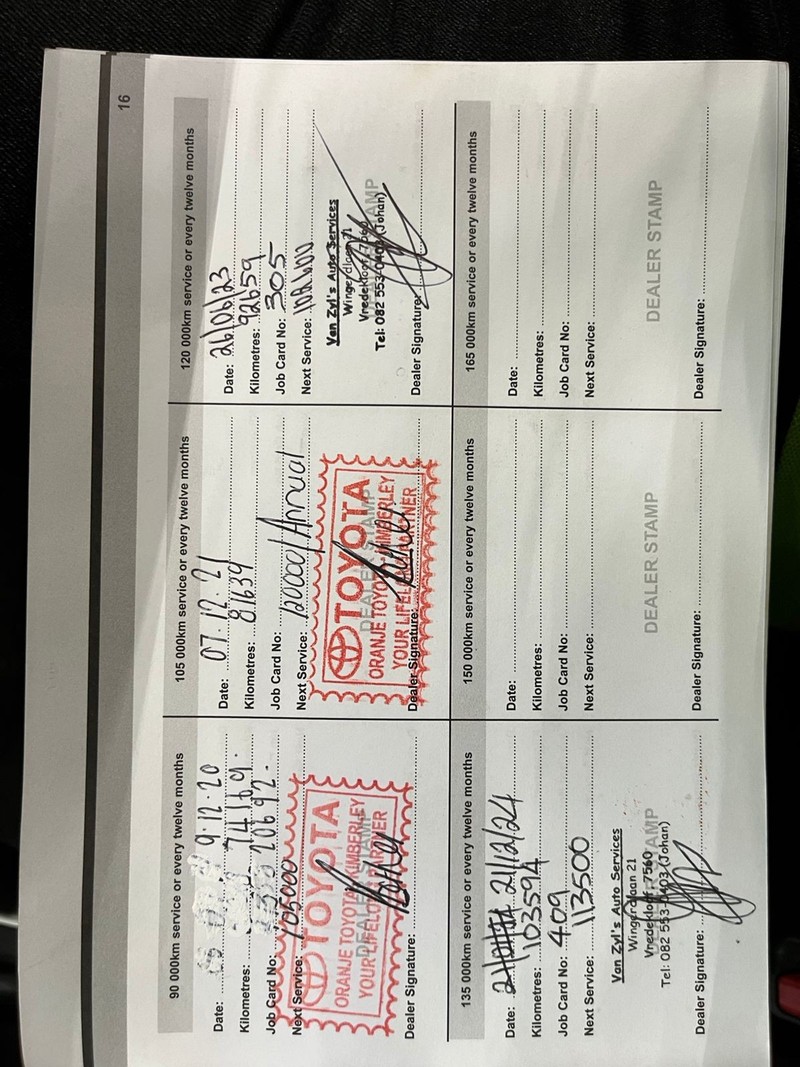 16
90 000km service or every twelve months
Date: 9.12.20
Kilometres: 74169.
Job Card No: 20692.
Next Service: 105000
TOYOTA
ORANJE TOYOTA KIMBERLEY
YOUR LIFELONG PARTNER
DEALER STAMP
Dealer Signature:
105 000km service or every twelve months
Date: 07.12.21
Kilometres: 81639
Job Card No:
Next Service: 120000/Annual
TOYOTA
DEALER STAMP
ORANJE TOYOTA KIMBERLEY
YOUR LIFELONG PARTNER
Dealer Signature:
120 000km service or every twelve months
Date: 26/06/23
Kilometres: 92659
Job Card No: 305
Next Service: 102600
Van Zyl's Auto Services
Wingerdloan 21
Vredekloof 7560
Tel: 082 553 0403 (Johan)
DEALER STAMP
Dealer Signature:
135 000km service or every twelve months
Date: 21/12/24
Kilometres: 103594
Job Card No: 409
Next Service: 113500
Van Zyl's Auto Services
Wingerdloan 21
Vredekloof 7560
Tel: 082 553-0403 (Johan)
DEALER STAMP
Dealer Signature:
150 000km service or every twelve months
Date:
Kilometres:
Job Card No:
Next Service:
DEALER STAMP
Dealer Signature:
165 000km service or every twelve months
Date:
Kilometres:
Job Card No:
Next Service:
DEALER STAMP
Dealer Signature: